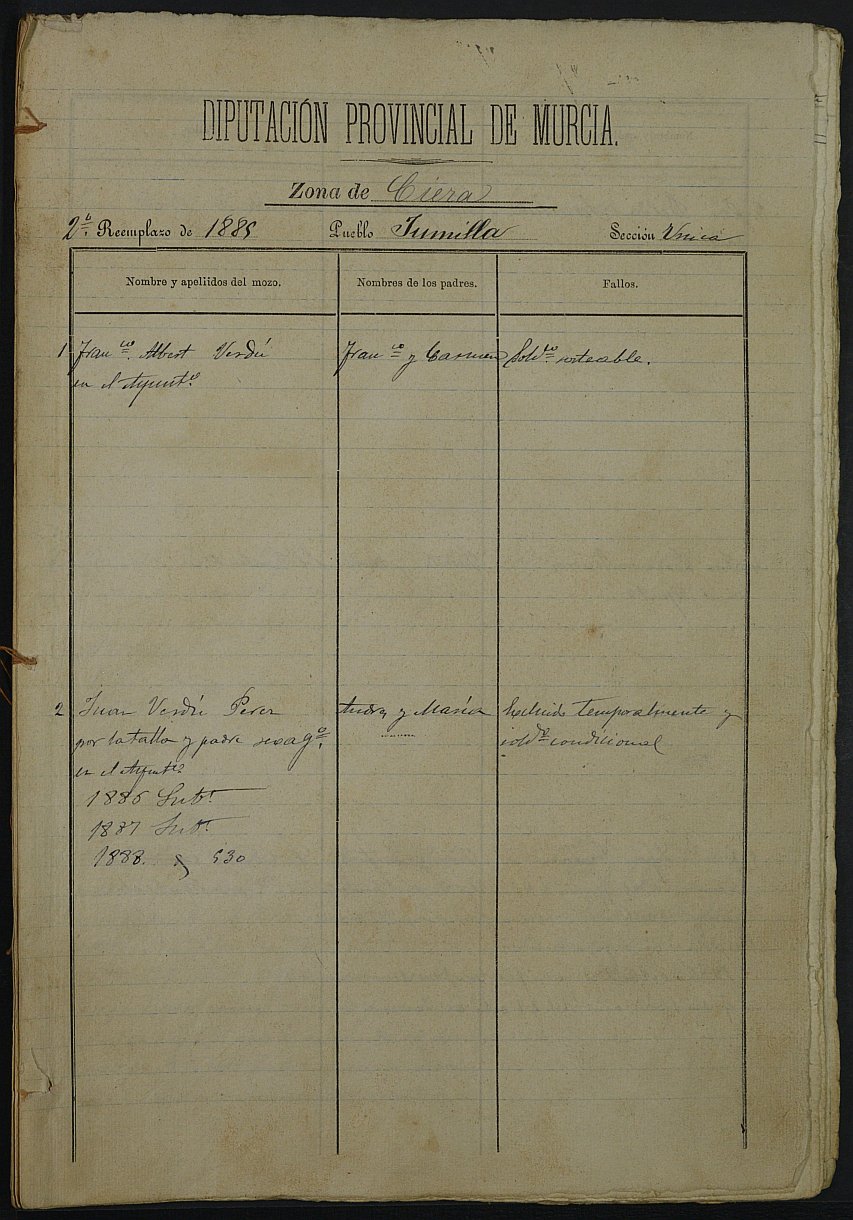 DIPUTACIÓN PROVINCIAL DE MURCIA.
Zona de Cieza
2º Reemplazo de 1885 Pueblo Jumilla Sección Unica
Nombre y apeliidos del mozo. Nombres de los padres. Fallos.
1 Franco. Albert Verdú Franco y Carmen Soldo sorteable.
en el Ayunto
2 Juan Verdú Perez Andrs y María Excluido temporalmente y
por la talla y padre sexago. soldo condicional
en el Ayunto
1886 Subt
1887 Subt
1888. 530